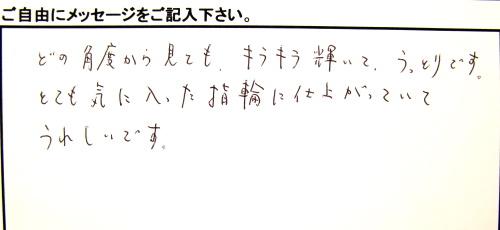 ご自由にメッセージをご記入下さい。
どの角度から見ても、キラキラ輝いて、うっとりです。
とても気に入った指輪に仕上がっていて
うれしいです。